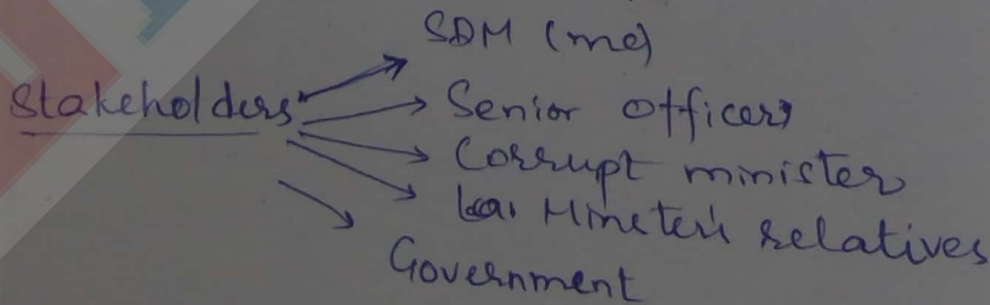 SDM (me)
Stakeholders
Senior Officers
Corrupt minister
Minister's relatives
Government